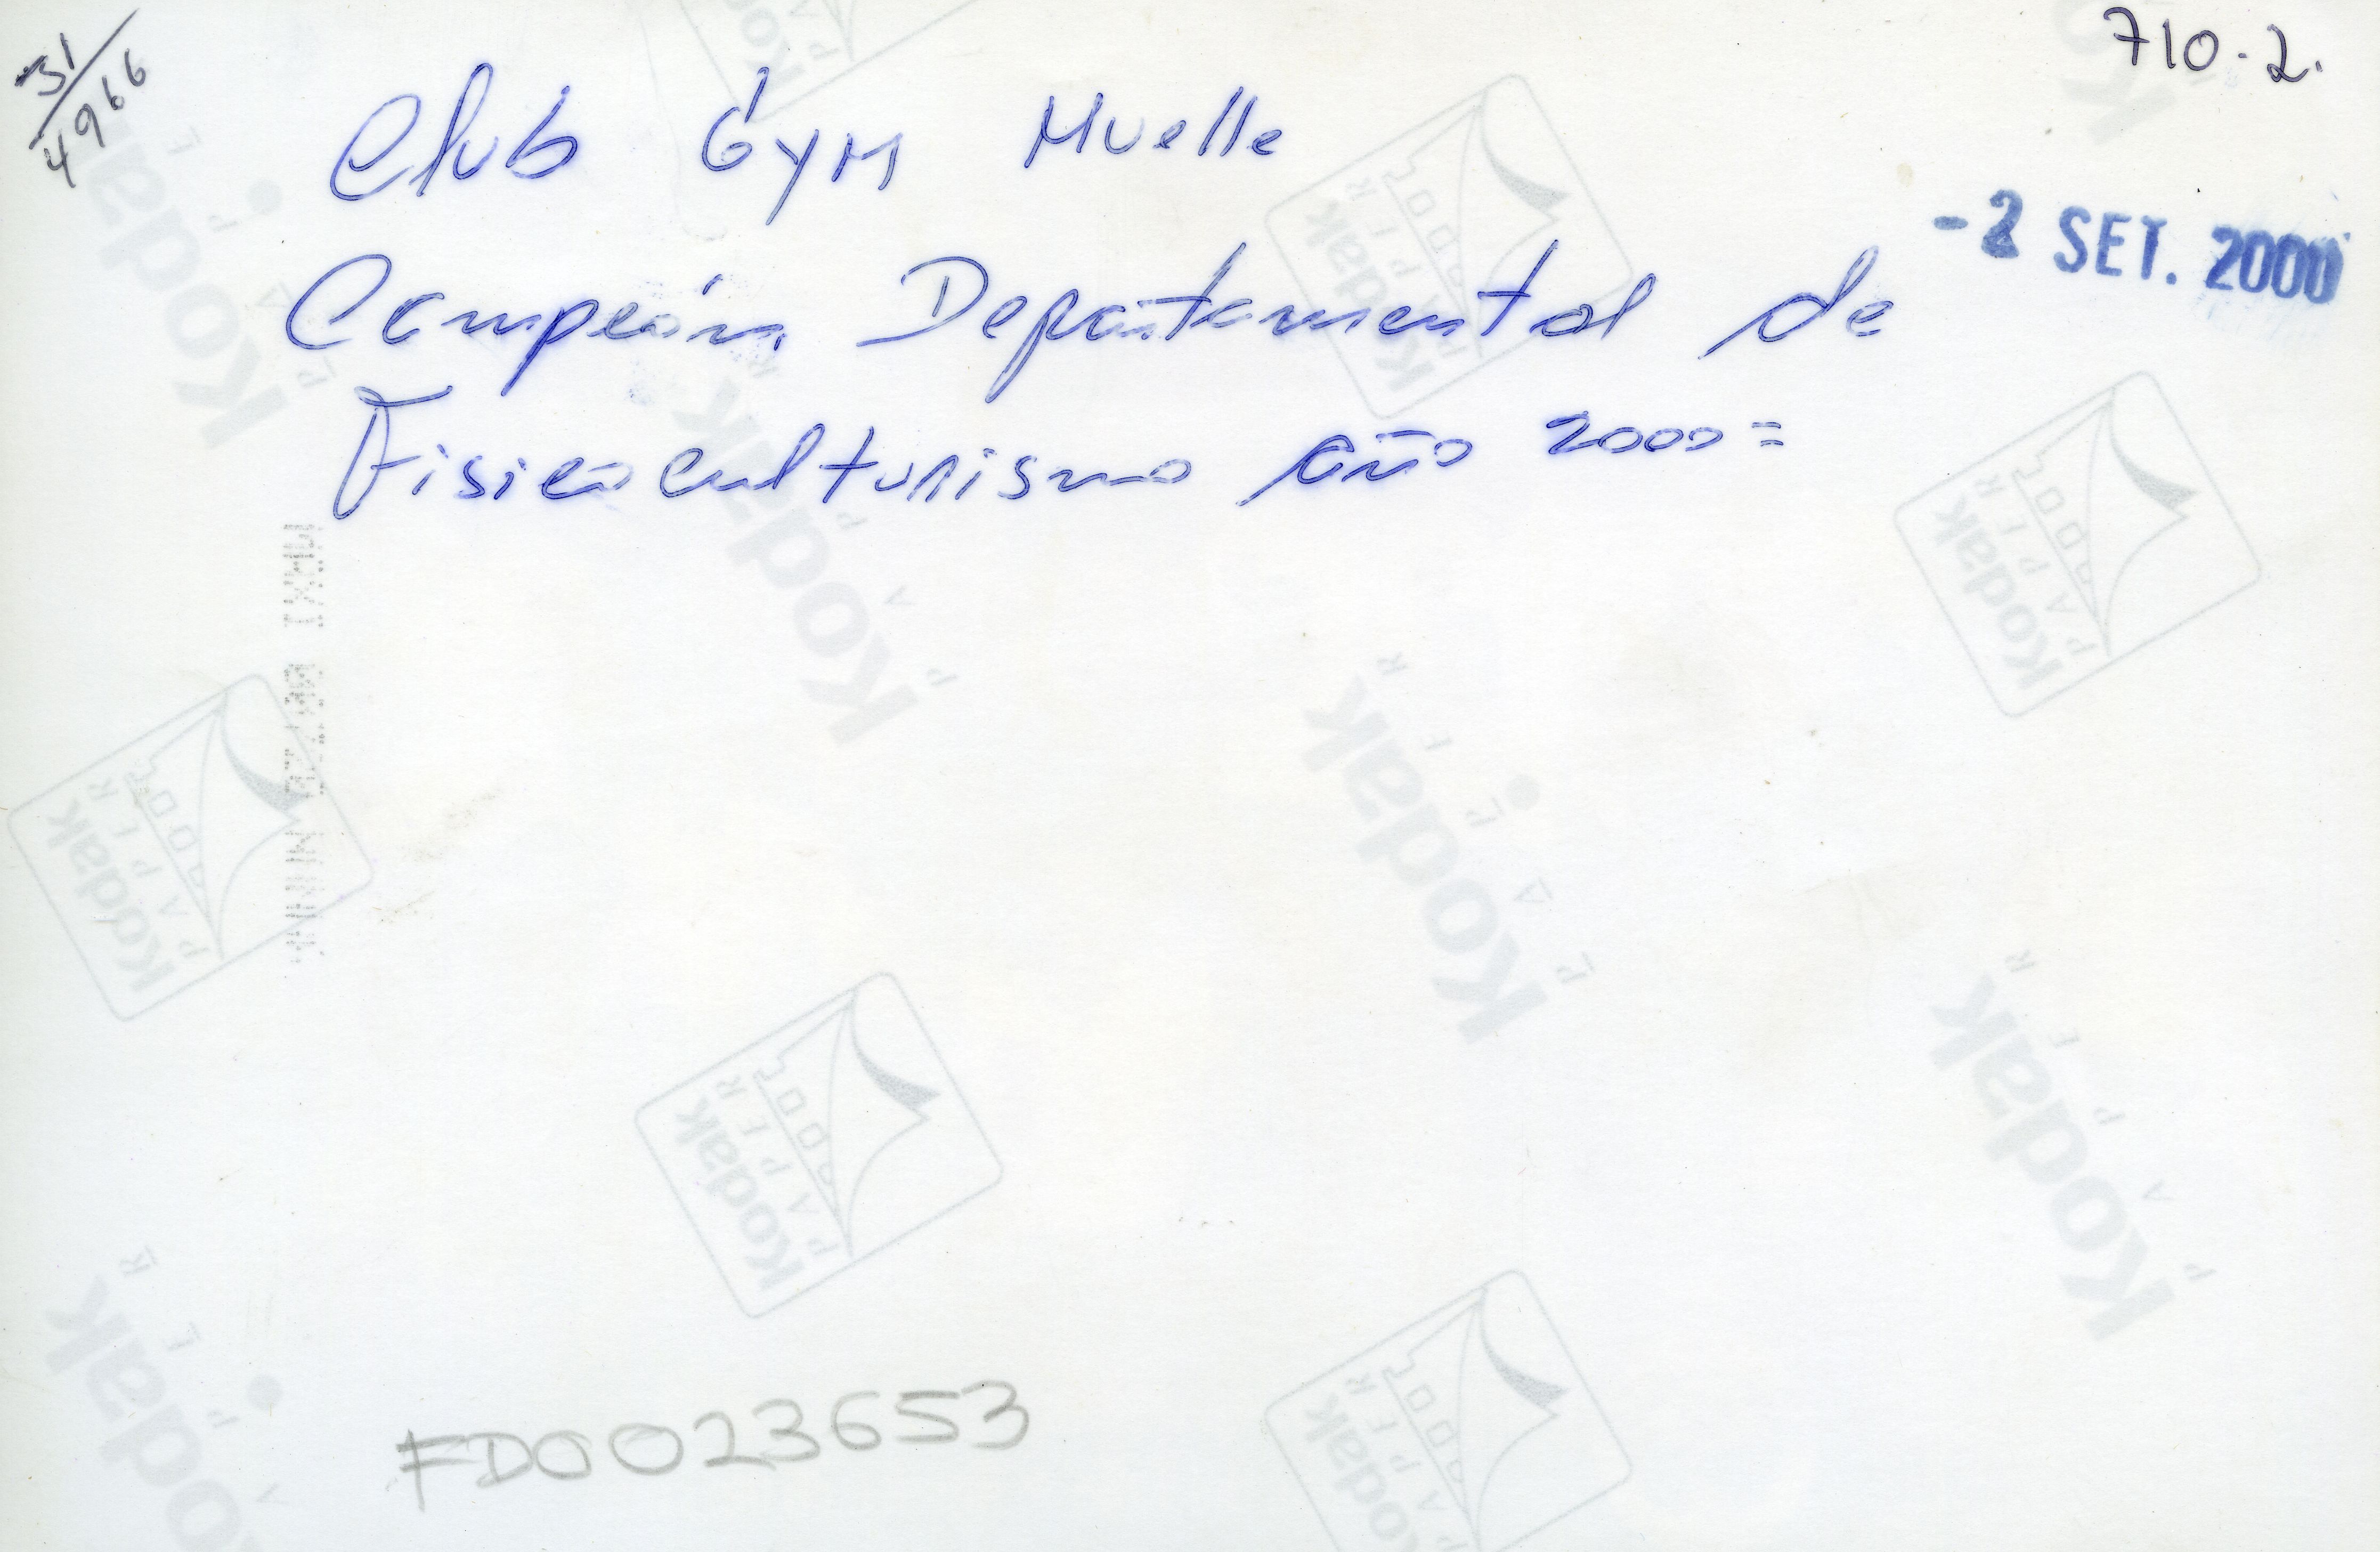 31/4966
710-2.
Club Gym Muelle
-2 SET. 2000
Campeón Departamental de
Fisicoculturismo año 2000=
FD0023653
Kodak
PAPER